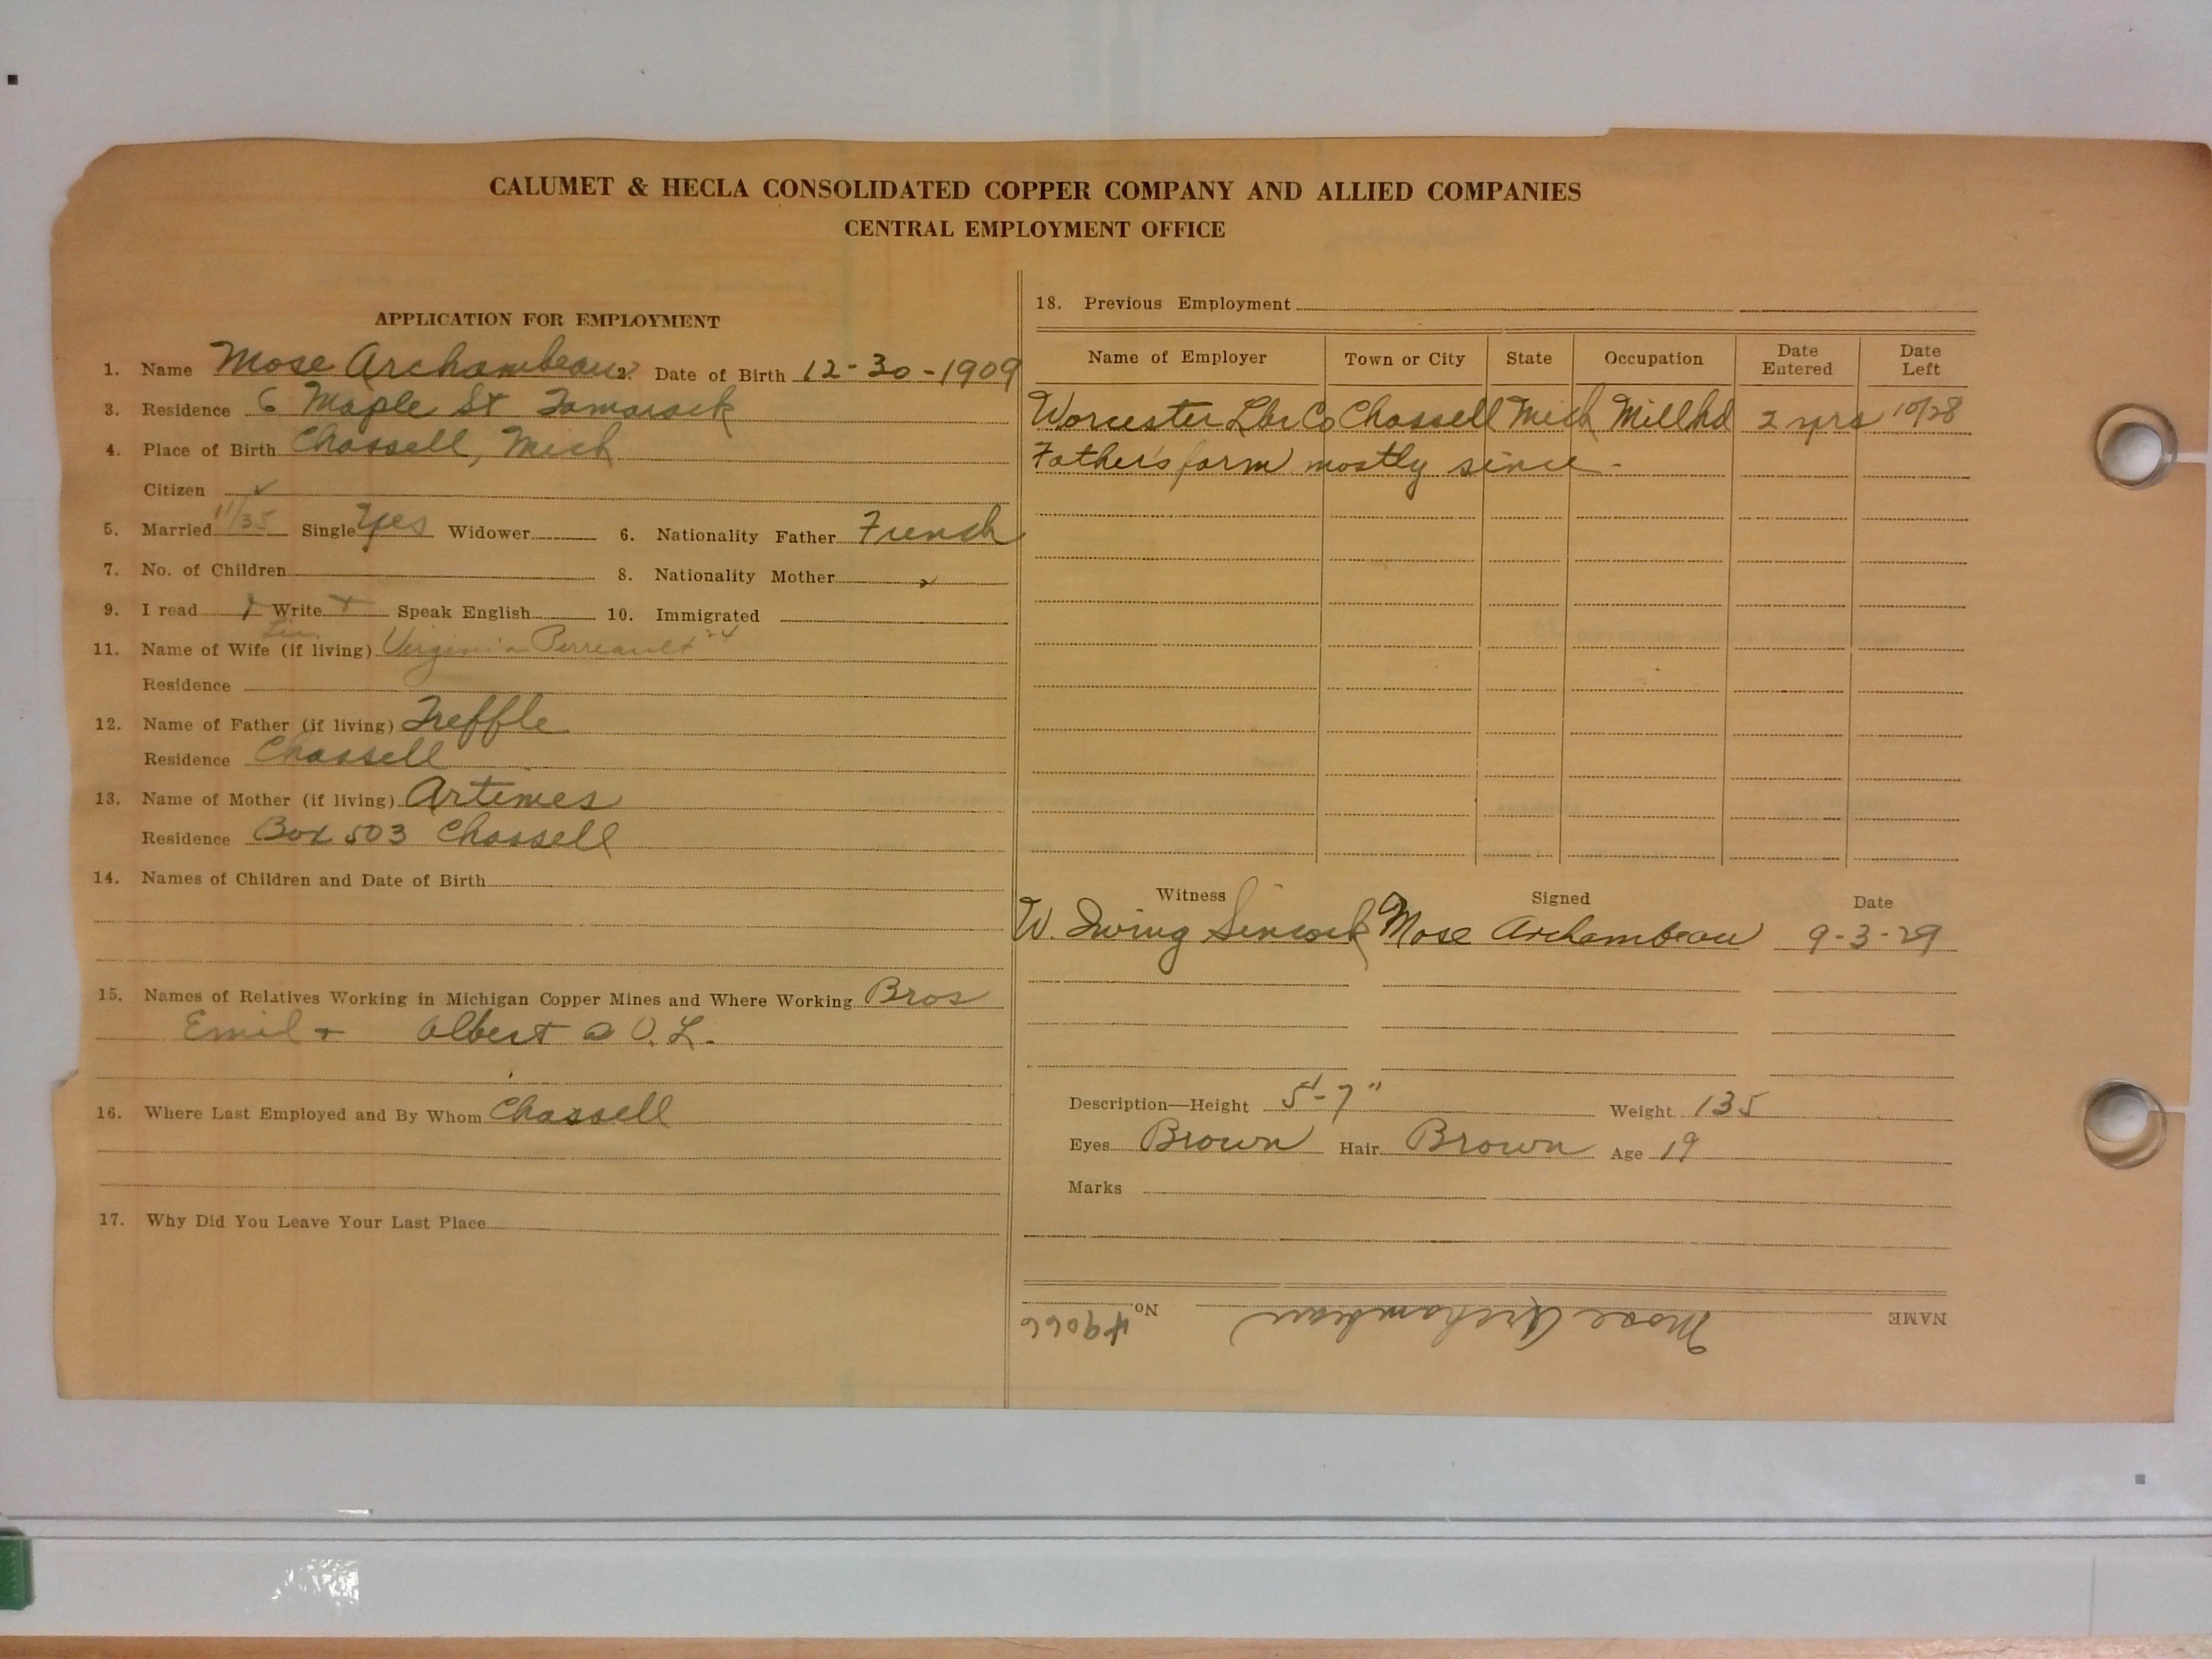 CALUMET & HECLA CONSOLIDATED COPPER COMPANY AND ALLIED COMPANIES
CENTRAL EMPLOYMENT OFFICE
APPLICATION FOR EMPLOYMENT
1. Name Mose Archambeau 2. Date of Birth 12-30-1909
3. Residence 6 Maple St Tamarack
4. Place of Birth Chassell, Mich
Citizen ✓
5. Married 11/35 Single Yes Widower 6. Nationality Father French
7. No. of Children 8. Nationality Mother "
9. I read Write Speak English 10. Immigrated
11. Name of Wife (if living) Virginia Perreault
Residence
12. Name of Father (if living) Treffle
Residence Chassell
13. Name of Mother (if living) Artemes
Residence Box 503 Chassell
14. Names of Children and Date of Birth
15. Names of Relatives Working in Michigan Copper Mines and Where Working Bros
Emil + Albert @ O. L.
16. Where Last Employed and By Whom Chassell
17. Why Did You Leave Your Last Place
18. Previous Employment
Name of Employer Town or City State Occupation Date Entered Date Left
Worcester Lbr Co Chassell Mich Millhd 2 yrs 10/28
Father's farm mostly since.
Witness Signed Date
W. Irving Sincock Mose Archambeau 9-3-29
Description—Height 5'-7" Weight 135
Eyes Brown Hair Brown Age 19
Marks
NAME Mose Archambeau No. 49066